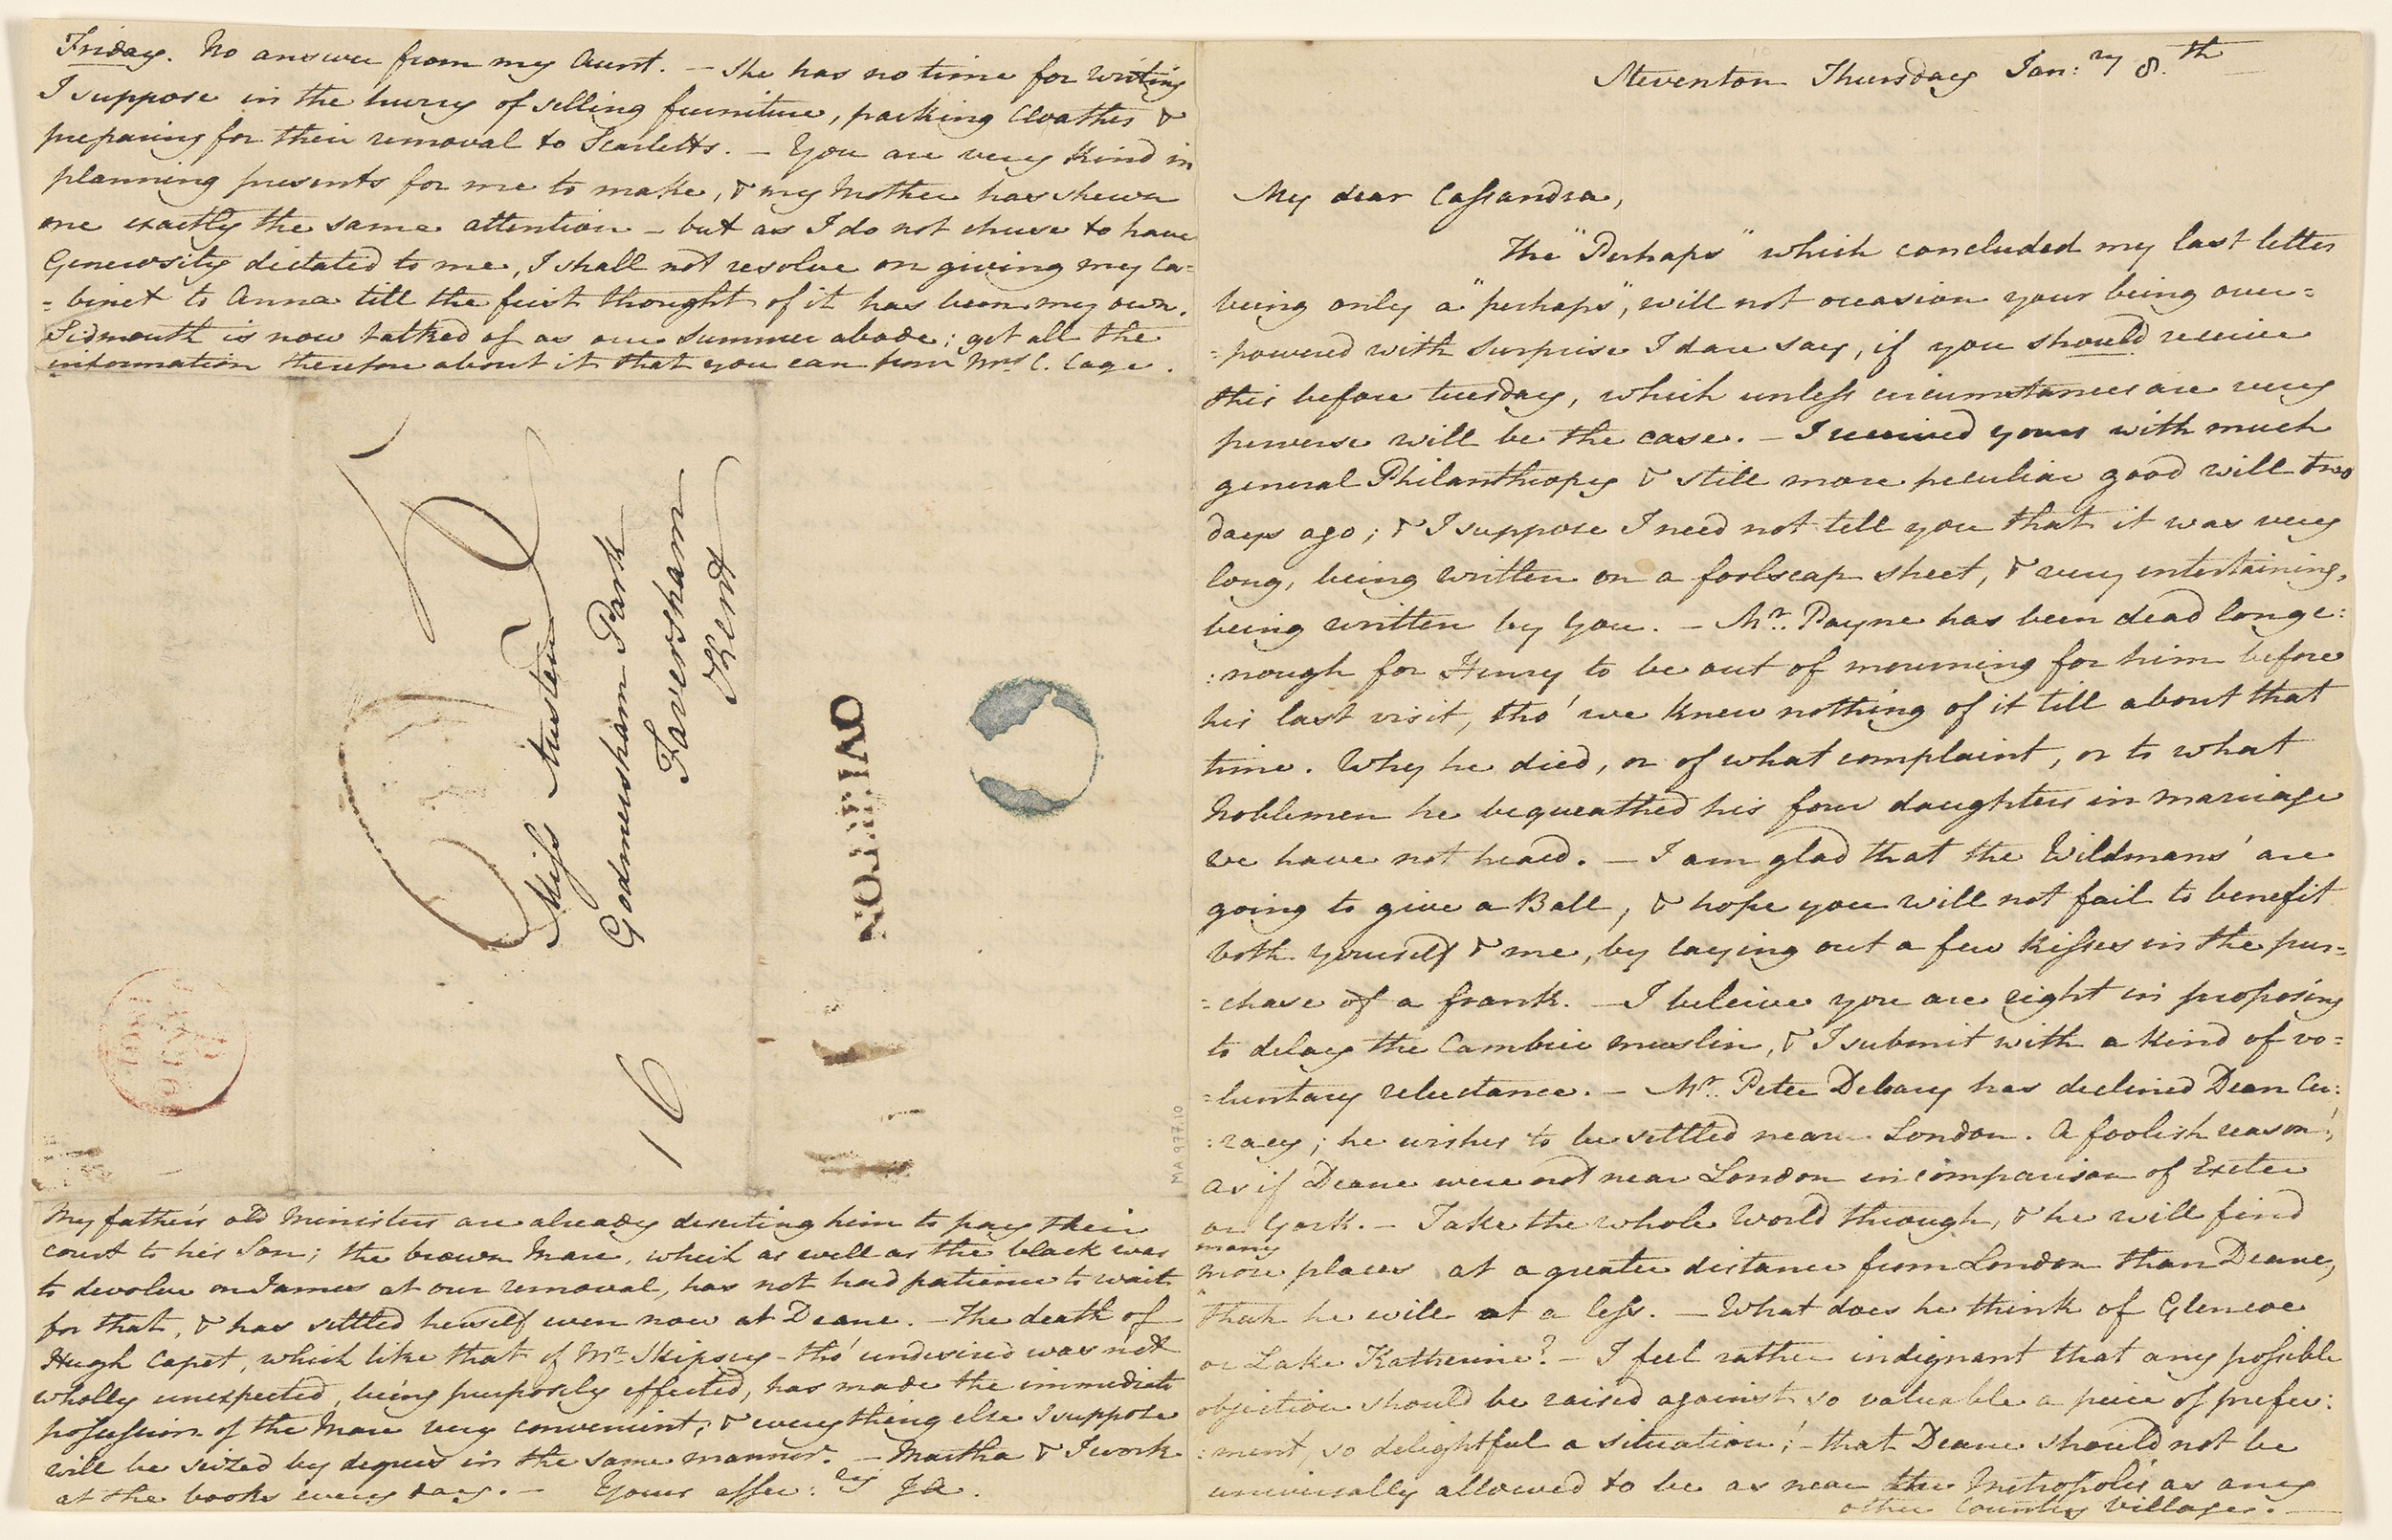 Steventon Thursday Jan:ry 8.th
My dear Cassandra,
The "Perhaps" which concluded my last letter
being only a "perhaps", will not occasion your being over=
=powered with Surprise I dare say, if you should receive
this before tuesday, which unless circumstances are very
perverse will be the case. - I received yours with much
general Philanthropy & still more peculiar good will two
days ago; & I suppose I need not tell you that it was very
long, being written on a foolscap sheet, & very entertaining,
being written by You. - Mr. Payne has been dead long e:
:nough for Henry to be out of mourning for him before
his last visit, tho' we knew nothing of it till about that
time. Why he died, or of what complaint, or to what
Noblemen he bequeathed his four daughters in marriage
we have not heard. - I am glad that the Wildmans' are
going to give a Ball, & hope you will not fail to benefit
both yourself & me, by laying out a few kisses in the pur=
=chase of a frank. - I beleive you are right in proposing
to delay the Cambric muslin, & I submit with a kind of vo=
=luntary reluctance. - Mr. Peter Debary has declined Dean Cu:
:racy; he wishes to be settled near London. A foolish reason!,
as if Deane were not near London in comparison of Exeter
or York. - Take the whole World through, & he will find
many
more places at a greater distance from London than Deane,
than he will at a less. - What does he think of Glencoe
or Lake Katherine? - I feel rather indignant that any possible
objection should be raised against so valuable a peice of prefer:
:ment, so delightful a situation!- that Deane should not be
universally allowed to be as near the Metropolis as any
other Country Villages. -
Friday. No answer from my Aunt. - She has no time for writing
I suppose in the hurry of selling furniture, packing Cloathes &
preparing for their removal to Scarletts. - You are very kind in
planning presents for me to make, & my Mother has shewn
me exactly the same attention - but as I do not chuse to have
Generosity dictated to me, I shall not resolve on giving my Ca=
=binet to Anna till the first thought of it has been my own.
Sidmouth is now talked of as our Summer abode; get all the
information therefore about it that you can from Mrs. C. Cage.
Miss Austen
Godmersham Park
Faversham
Kent
OVERTON
16
My father's old Ministers are already deserting him to pay their
court to his Son; the brown Mare, which as well as the black was
to devolve on James at our removal, has not had patience to wait
for that, & has settled herself even now at Deane. - The death of
Hugh Capet, which like that of Mr. Skipsey - tho' undesired was not
wholly unexpected, being purposely effected, has made the immediate
possession of the Mare very convenient; & everything else I suppose
will be seized by degrees in the same manner. - Martha & I work
at the books every day. - Yours affec:ly JA.
MA 977.10